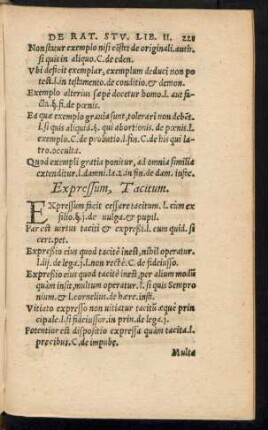 DE RAT. STV. LIB. II. 221
Non statur exemplo nisi cōstet de originali. auth.
si quis in aliquo. C. de eden.
Vbi deficit exemplar, exemplum deduci non po
test. l. in testamento. de conditio. & demon.
Exemplo alterius sæpè docetur homo. l. aut fa
cta. §. fi. de pœnis.
Ea quæ exemplo grauia sunt, tolerari non debēt.
l. si quis aliquid. §. qui abortionis. de pœnis. l.
exemplo. C. de probatio. l. fin. C. de his qui la
tro. occulta.
Quod exempli gratia ponitur, ad omnia similia
extenditur. l. damni. la. 2. in fin. de dam. infec.
Expressum, Tacitum.
EXpressum facit cessare tacitum. l. cùm ex
filio. §. j. de vulga. & pupil.
Par est uirtus taciti & expreßi. l. cum quid. si
cert. pet.
Expreßio eius quod tacitè inest, nihil operatur.
l. iij. de lega. j. l. non rectè. C. de fideiusso.
Expreßio eius quod tacitè inest, per alium modū
quàm insit, multum operatur. l. si quis Sempro
nium. & l. cornelius. de hære. insti.
Vitiato expresso non uitiatur tacitū æquè prin
cipale. l. si fideiussor. in prin. de lega. j.
Potentior est dispositio expressa quàm tacita. l.
precibus. C. de impub.
Multa